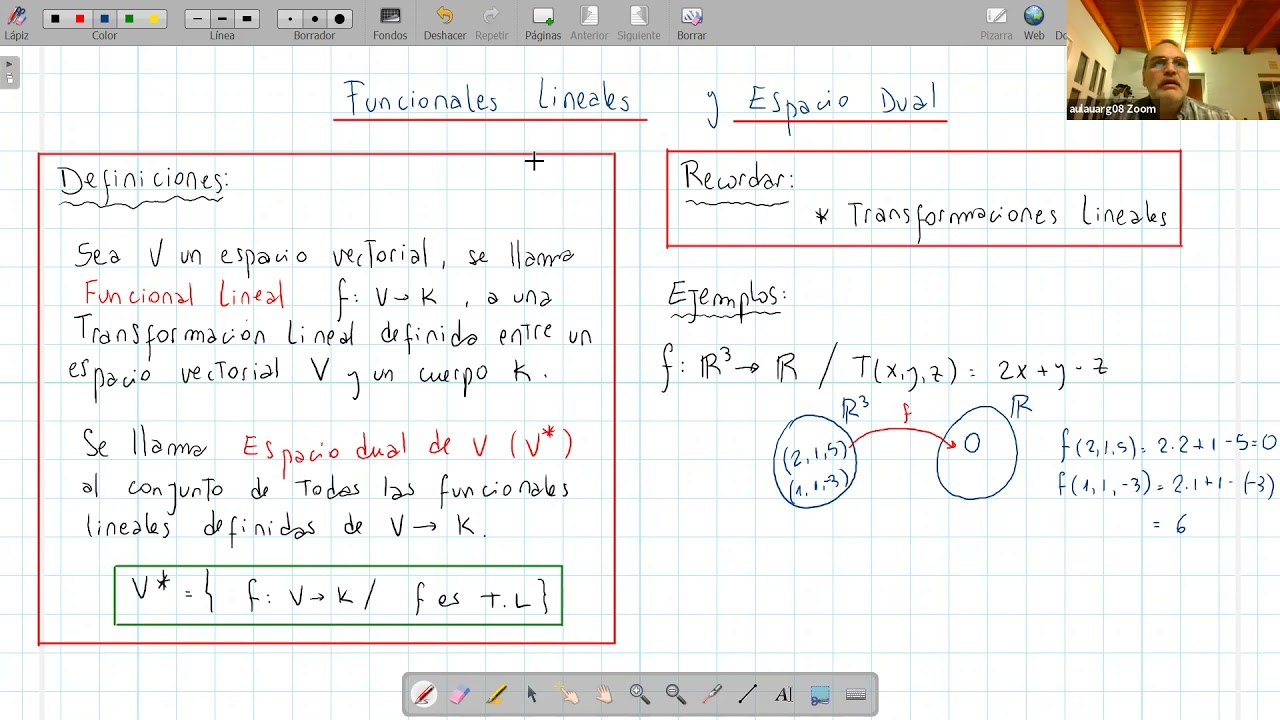 Lápiz
Color
Línea
Borrador
Fondos
Deshacer
Repetir
Páginas
Anterior
Siguiente
Borrar
Pizarra
Web
aulauarg08 Zoom
Funcionales Lineales y Espacio Dual
Definiciones:
Sea V un espacio vectorial, se llama
Funcional Lineal f: V→K, a una
Transformación Lineal definida entre un
espacio vectorial V y un cuerpo K.
Se llama Espacio dual de V (V*)
al conjunto de Todas las funcionales
lineales definidas de V→K.
V* = { f: V→K / f es T.L }
Recordar:
* Transformaciones Lineales
Ejemplos:
f: ℝ³→ ℝ / T(x,y,z) = 2x+y-z
ℝ³ f ℝ
(2,1,5) 0
(1,1,-3)
f(2,1,5) = 2.2+1-5=0
f(1,1,-3) = 2.1+1-(-3)
= 6
AI